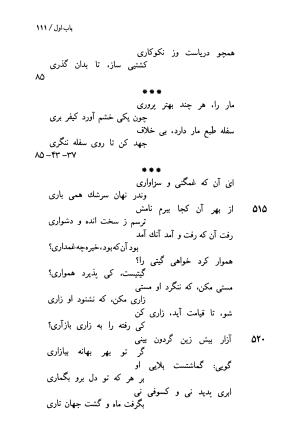 باب اول / ۱۱۱
همچو دریاست وز نکوکاری
کشتیی ساز، تا بدان گذری
۸۵
***
مار را، هر چند بهتر پروری
چون یکی خشم آورد کیفر بری
سفله طبع مار دارد، بی خلاف
جهد کن تا روی سفله ننگری
۳۷-۴۳-۸۵
***
ای آن که غمگنی و سزاواری
وندر نهان سرشك همی باری
۵۱۵ از بهر آن کجا ببرم نامش
ترسم ز سخت انده و دشواری
رفت آن که رفت و آمد آنك آمد
بود آن‌که‌بود، خیره‌چه‌غمداری؟
هموار کرد خواهی گیتی را؟
گیتیست، کی پذیرد همواری؟
مستی مکن، که ننگرد او مستی
زاری مکن، که نشنود او زاری
شو، تا قیامت آید، زاری کن
کی رفته را به زاری بازآری؟
۵۲۰ آزار بیش زین گردون بینی
گر تو بهر بهانه بیازاری
گویی: گماشتست بلایی او
بر هر که تو دل برو بگماری
ابری پدید نی و کسوفی نی
بگرفت ماه و گشت جهان تاری